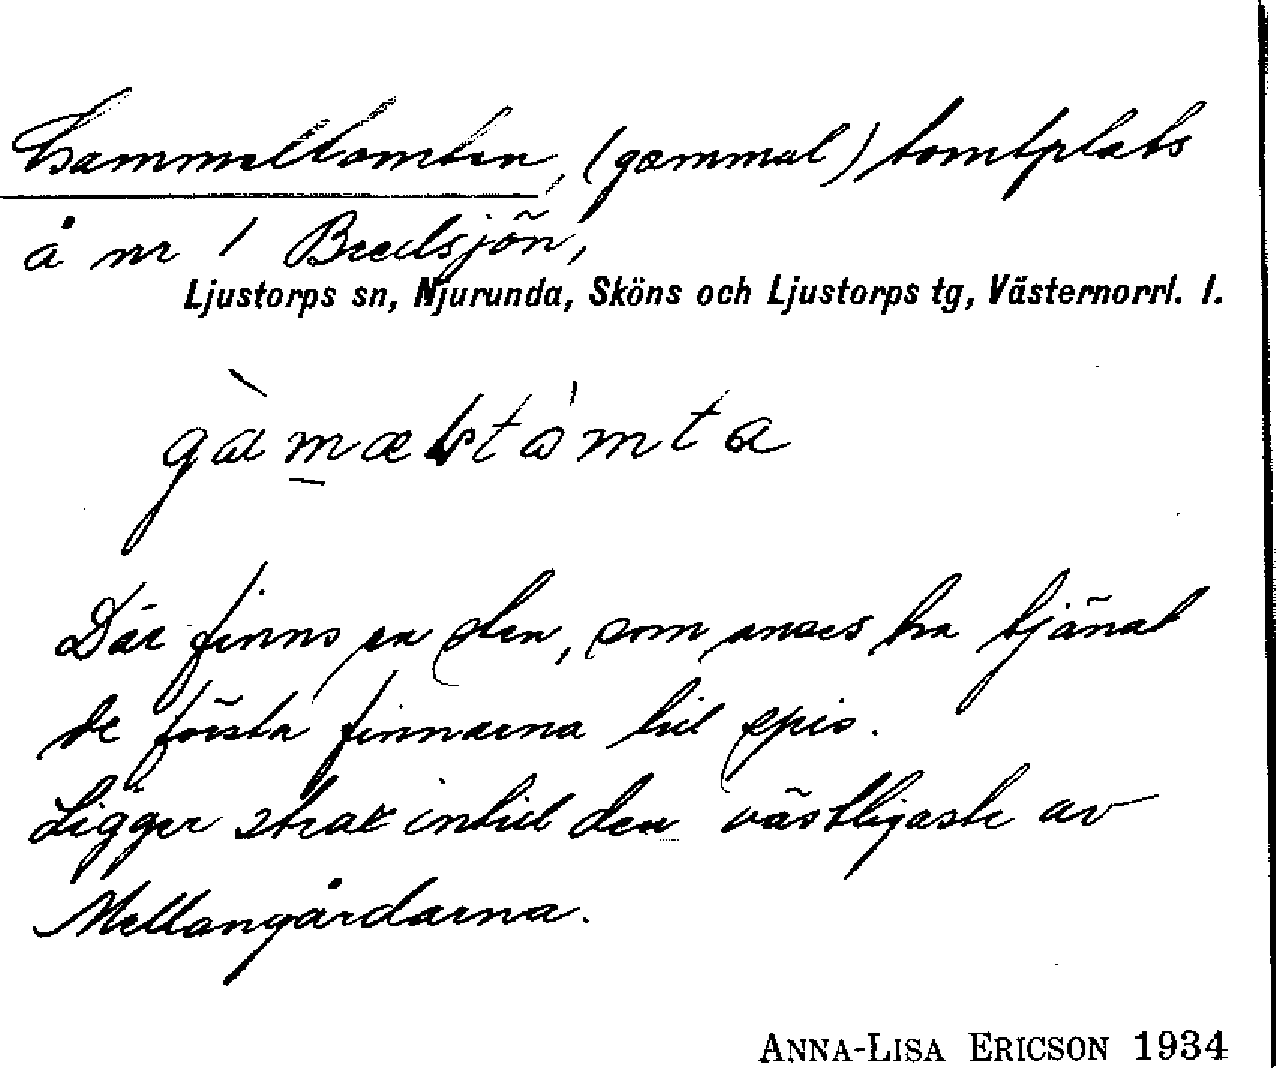 Gammeltomten, (gammal) tomtplats
å nr 1 Bredsjön,
Ljustorps sn, Njurunda, Sköns och Ljustorps tg, Västernorrl. l.
Där finns en sten, som anses ha tjänat
de första finnarna till spis.
Ligger strax intill den västligaste av
Mellangårdarna.
ANNA-LISA ERICSON 1934